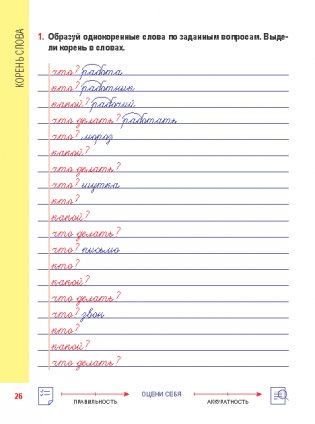 КОРЕНЬ СЛОВА
1. Образуй однокоренные слова по заданным вопросам. Выде-
ли корень в словах.
что? работа
кто? работник
какой? рабочий
что делать? работать
что? мороз
какой?
что делать?
что? шутка
кто?
какой?
что делать?
что? письмо
кто?
какой?
что делать?
что? звон
кто?
какой?
что делать?
26
ПРАВИЛЬНОСТЬ
ОЦЕНИ СЕБЯ
АККУРАТНОСТЬ